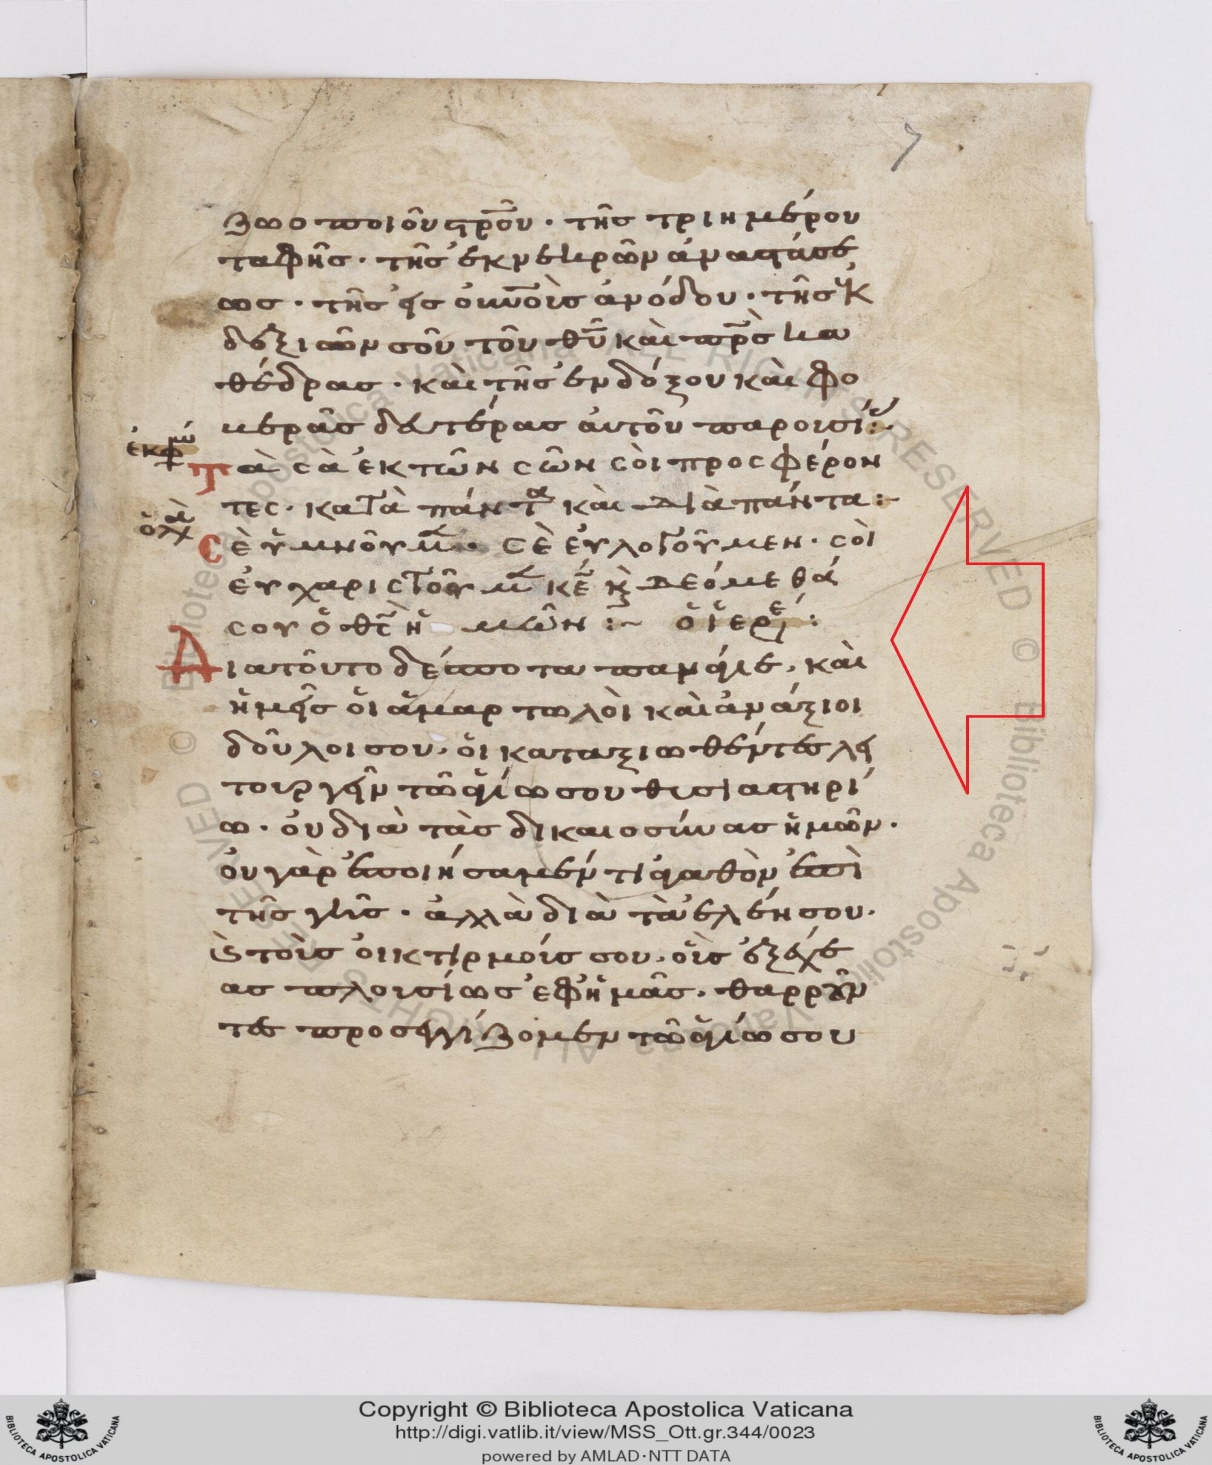 7
ζωοποιοῦ στροῦ · τῆς τριημέρου
ταφῆς · τῆς ἐκ νεκρῶν ἀναστάσε
ως · τῆς εἰς οὐνοὺς ἀνόδου · τῆς ἐκ
δεξιῶν σοῦ τοῦ θῦ καὶ πρς κα
θέδρας · καὶ τῆς ἐνδόξου καὶ φο
βερᾶς δευτέρας αὐτοῦ παρουσί
ἐκφω
Τὰ σὰ ἐκ τῶν σῶν σοὶ προσφέρον
τες · κατὰ πάντα καὶ διὰ πάντα :-
ὁ λα
Σὲ ὑμνοῦμ · σὲ εὐλογοῦμεν · σοὶ
εὐχαριστοῦμ κε κ δεόμεθά
σου ὁ θς ἡμῶν :~ ὁ ἱερε :
Διατοῦτο δέσποτα πανάγιε · καὶ
ἡμεῖς οἱ ἁμαρτωλοὶ καὶ ἀνάξιοι
δοῦλοι σου · οἱ καταξιωθέντες λει
τουργεῖν τῶ ἁγίω σου θυσιαστηρί
ω · οὐ διὰ τὰς δικαιοσύνας ἡμῶν ·
οὐ γὰρ ἐποιήσαμέν τι ἀγαθὸν ἐπὶ
τῆς γῆς · ἀλλὰ διὰ τὰ ἐλέη σου ·
κ τοὺς οἰκτιρμούς σου · οὓς ἐξέχε
ας πλουσίως ἐφ ἡμᾶς · θαρροῦν
τες προσεγγίζομεν τῶ ἁγίω σου
Copyright © Biblioteca Apostolica Vaticana
http://digi.vatlib.it/view/MSS_Ott.gr.344/0023
powered by AMLAD·NTT DATA
BIBLIOTECA APOSTOLICA VATICANA
BIBLIOTECA APOSTOLICA VATICANA